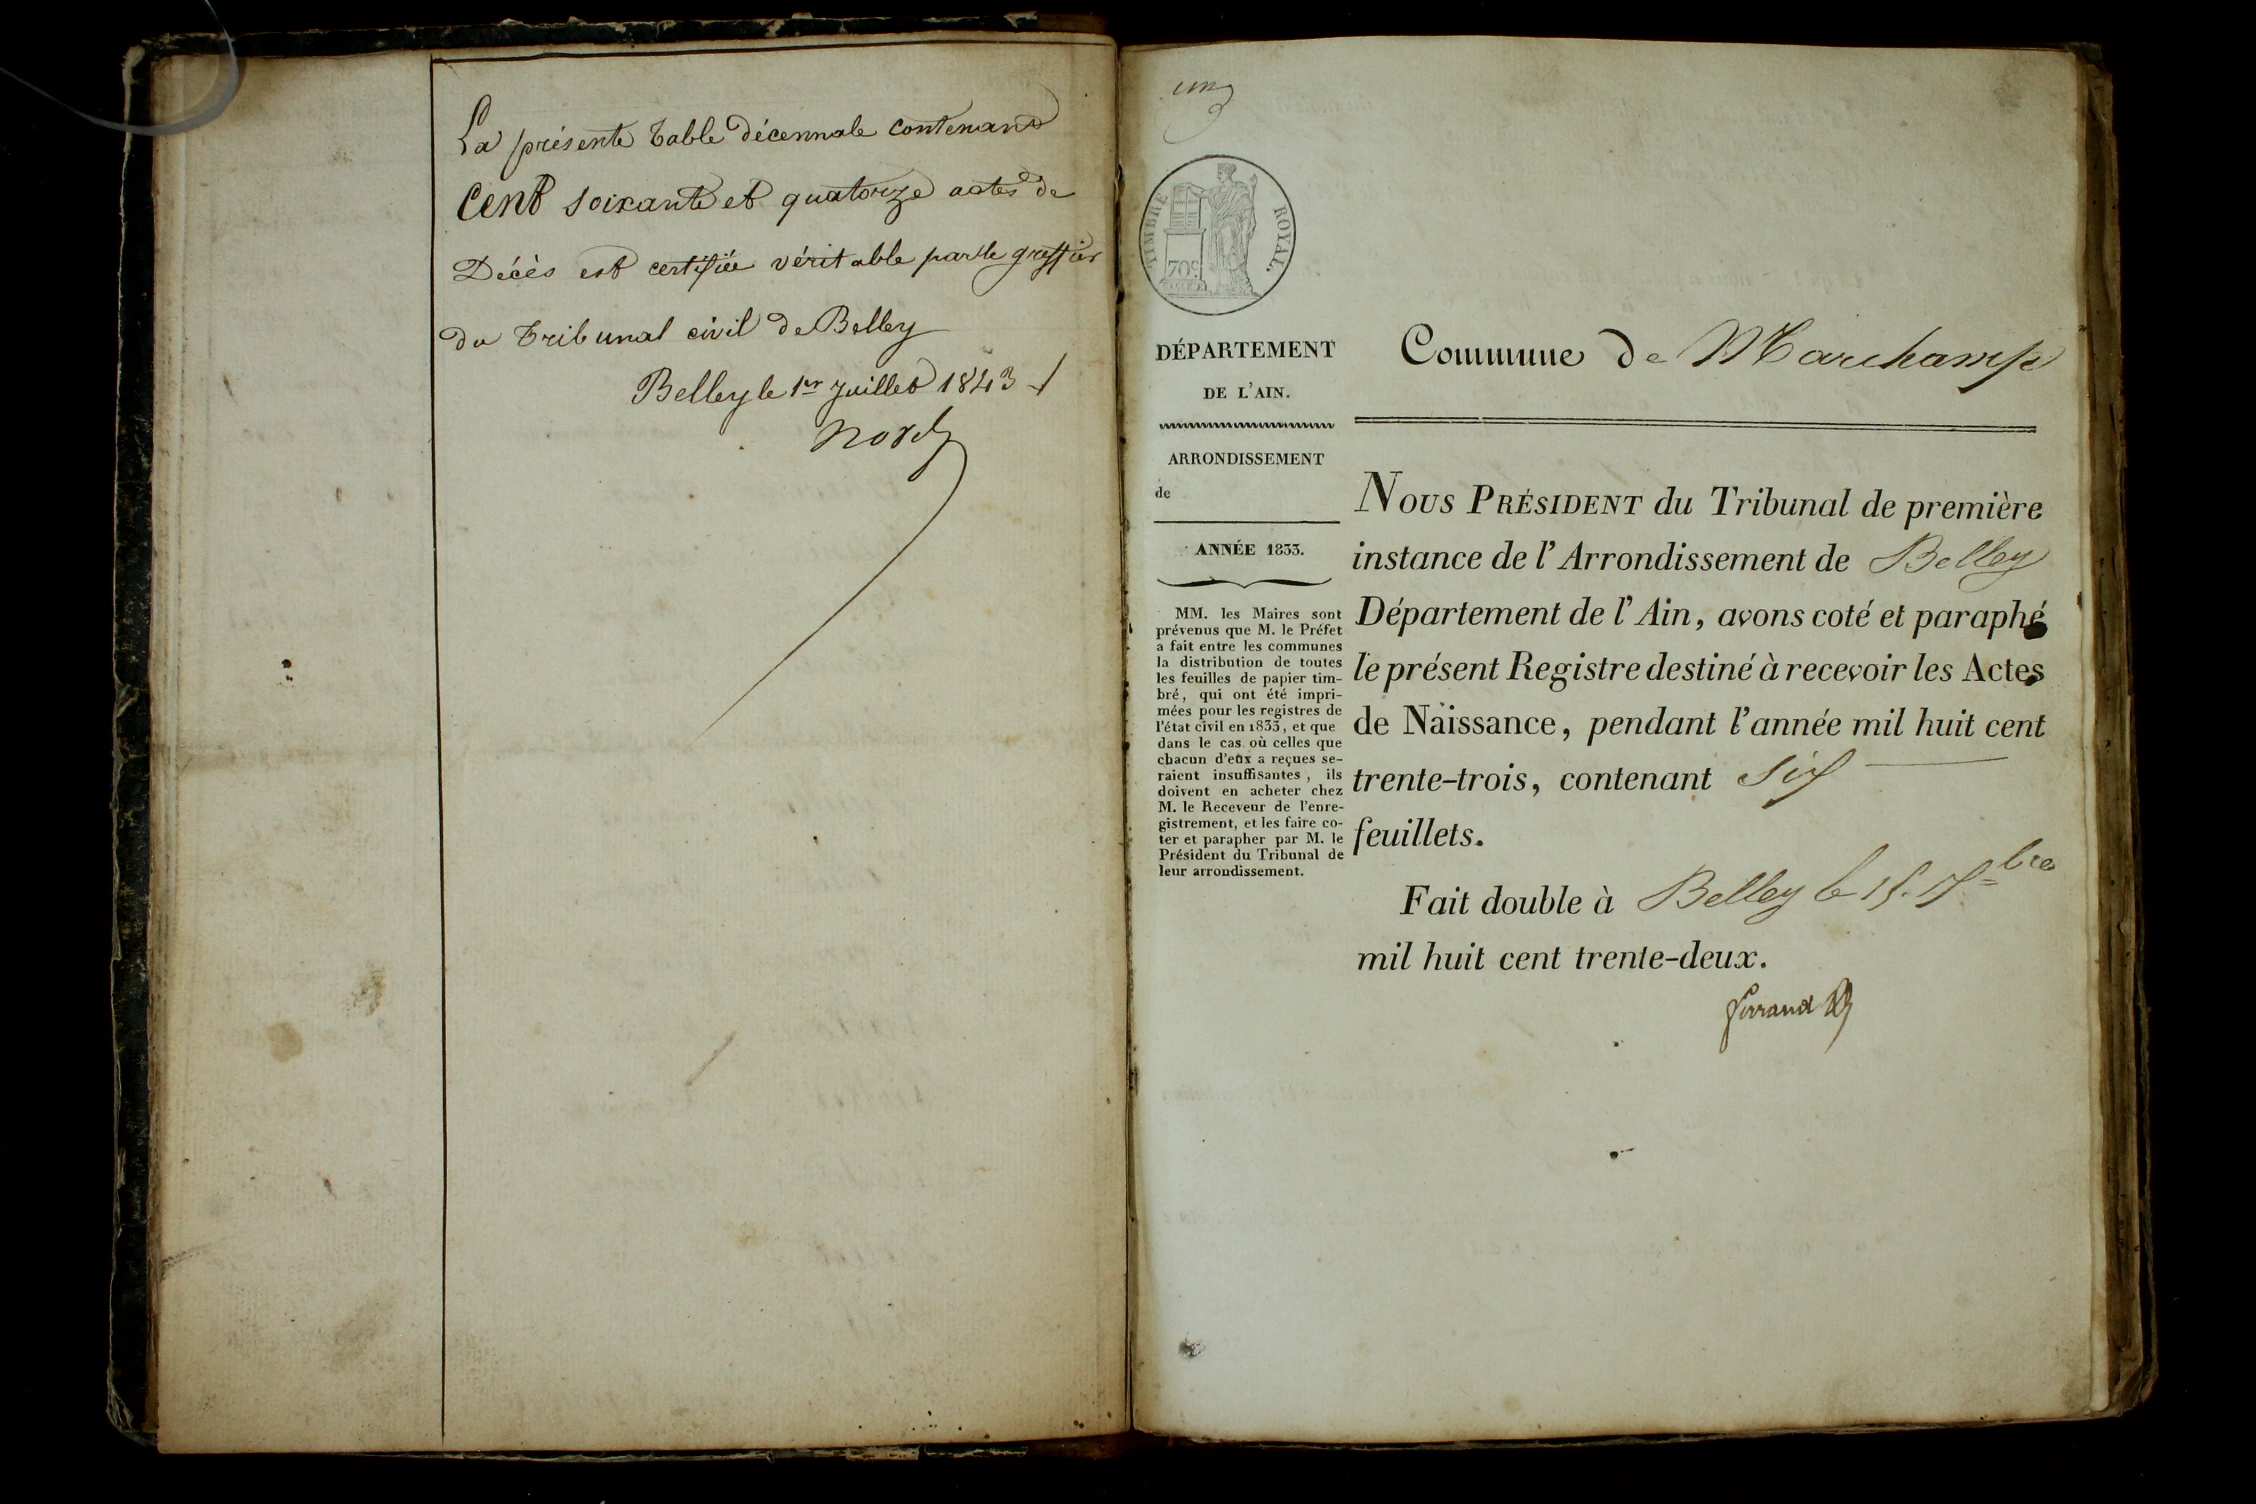 La présente table décennale contenant
Cent soixante et quatorze actes de
Décès est certifiée véritable par le greffier
du tribunal civil de Belley
Belley le 1er Juillet 1843
un
TIMBRE ROYAL.
70c
DÉPARTEMENT
DE L'AIN.
ARRONDISSEMENT
de
ANNÉE 1833.
MM. les Maires sont
prévenus que M. le Préfet
a fait entre les communes
la distribution de toutes
les feuilles de papier tim-
bré, qui ont été impri-
mées pour les registres de
l'état civil en 1833, et que
dans le cas où celles que
chacun d'eux a reçues se-
raient insuffisantes, ils
doivent en acheter chez
M. le Receveur de l'enre-
gistrement, et les faire co-
ter et parapher par M. le
Président du Tribunal de
leur arrondissement.
Commune de Marchamp
NOUS PRÉSIDENT du Tribunal de première
instance de l'Arrondissement de Belley
Département de l'Ain, avons coté et paraphé
le présent Registre destiné à recevoir les Actes
de Naissance, pendant l'année mil huit cent
trente-trois, contenant six
feuillets.
Fait double à Belley le 15.
mil huit cent trente-deux.
ferrand